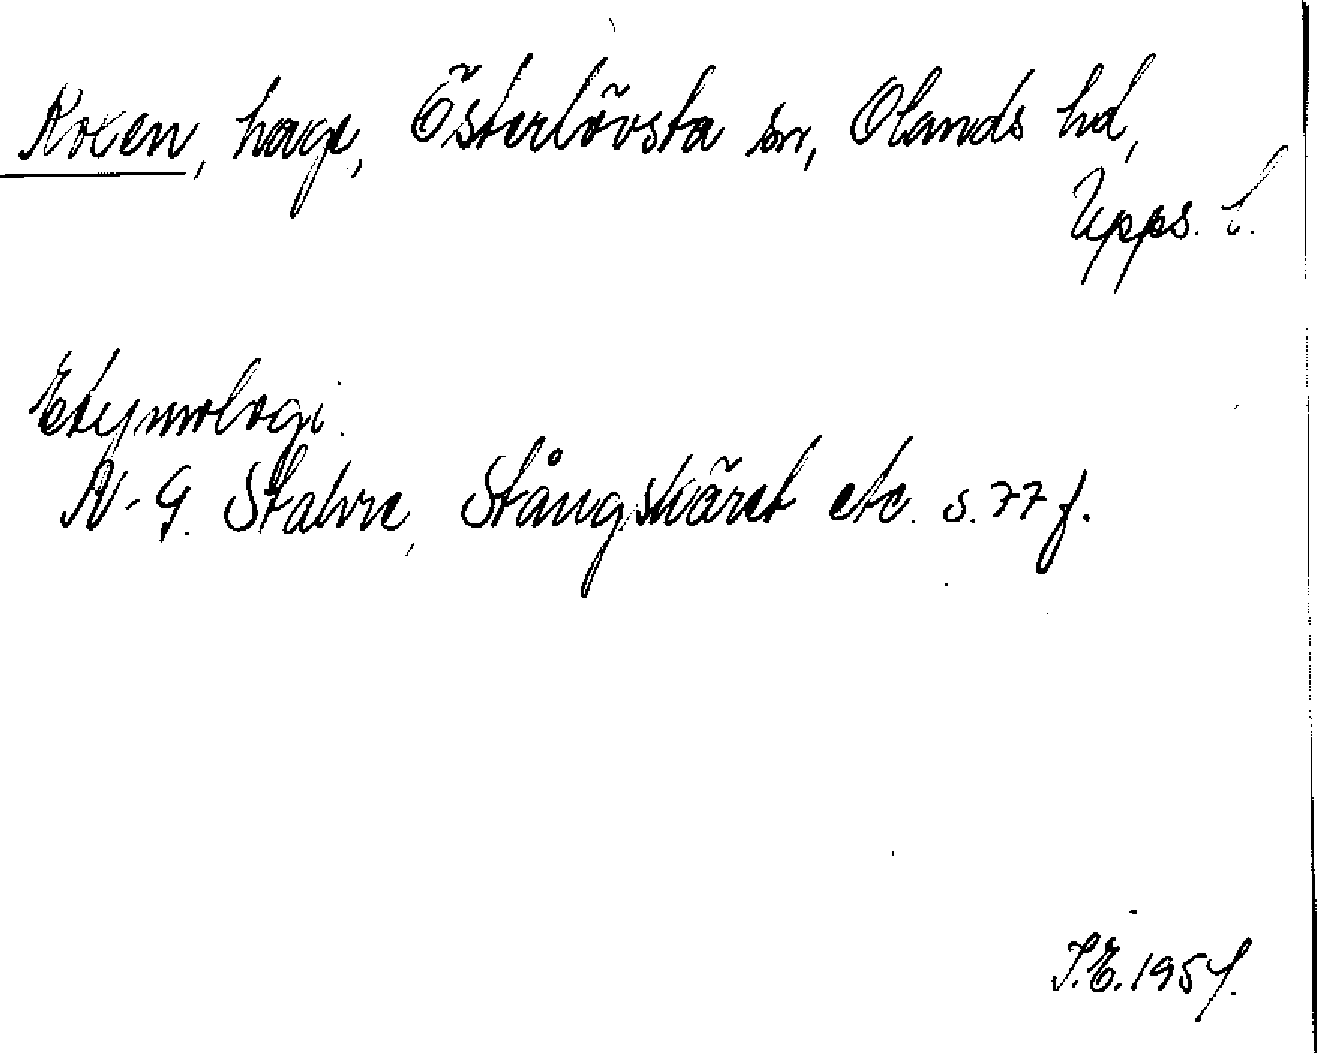 Noxen, hage, Österlövsta sn, Olands hd,
Upps. l.
Etymologi.
N-G. Stahre, Stångskäret etc. s. 77 f.
S.E. 1954.